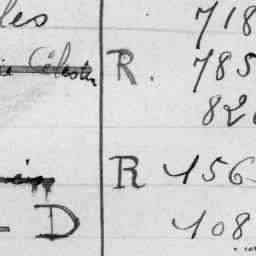 les 718
Célestin R. 785
82
R 156
- D 108